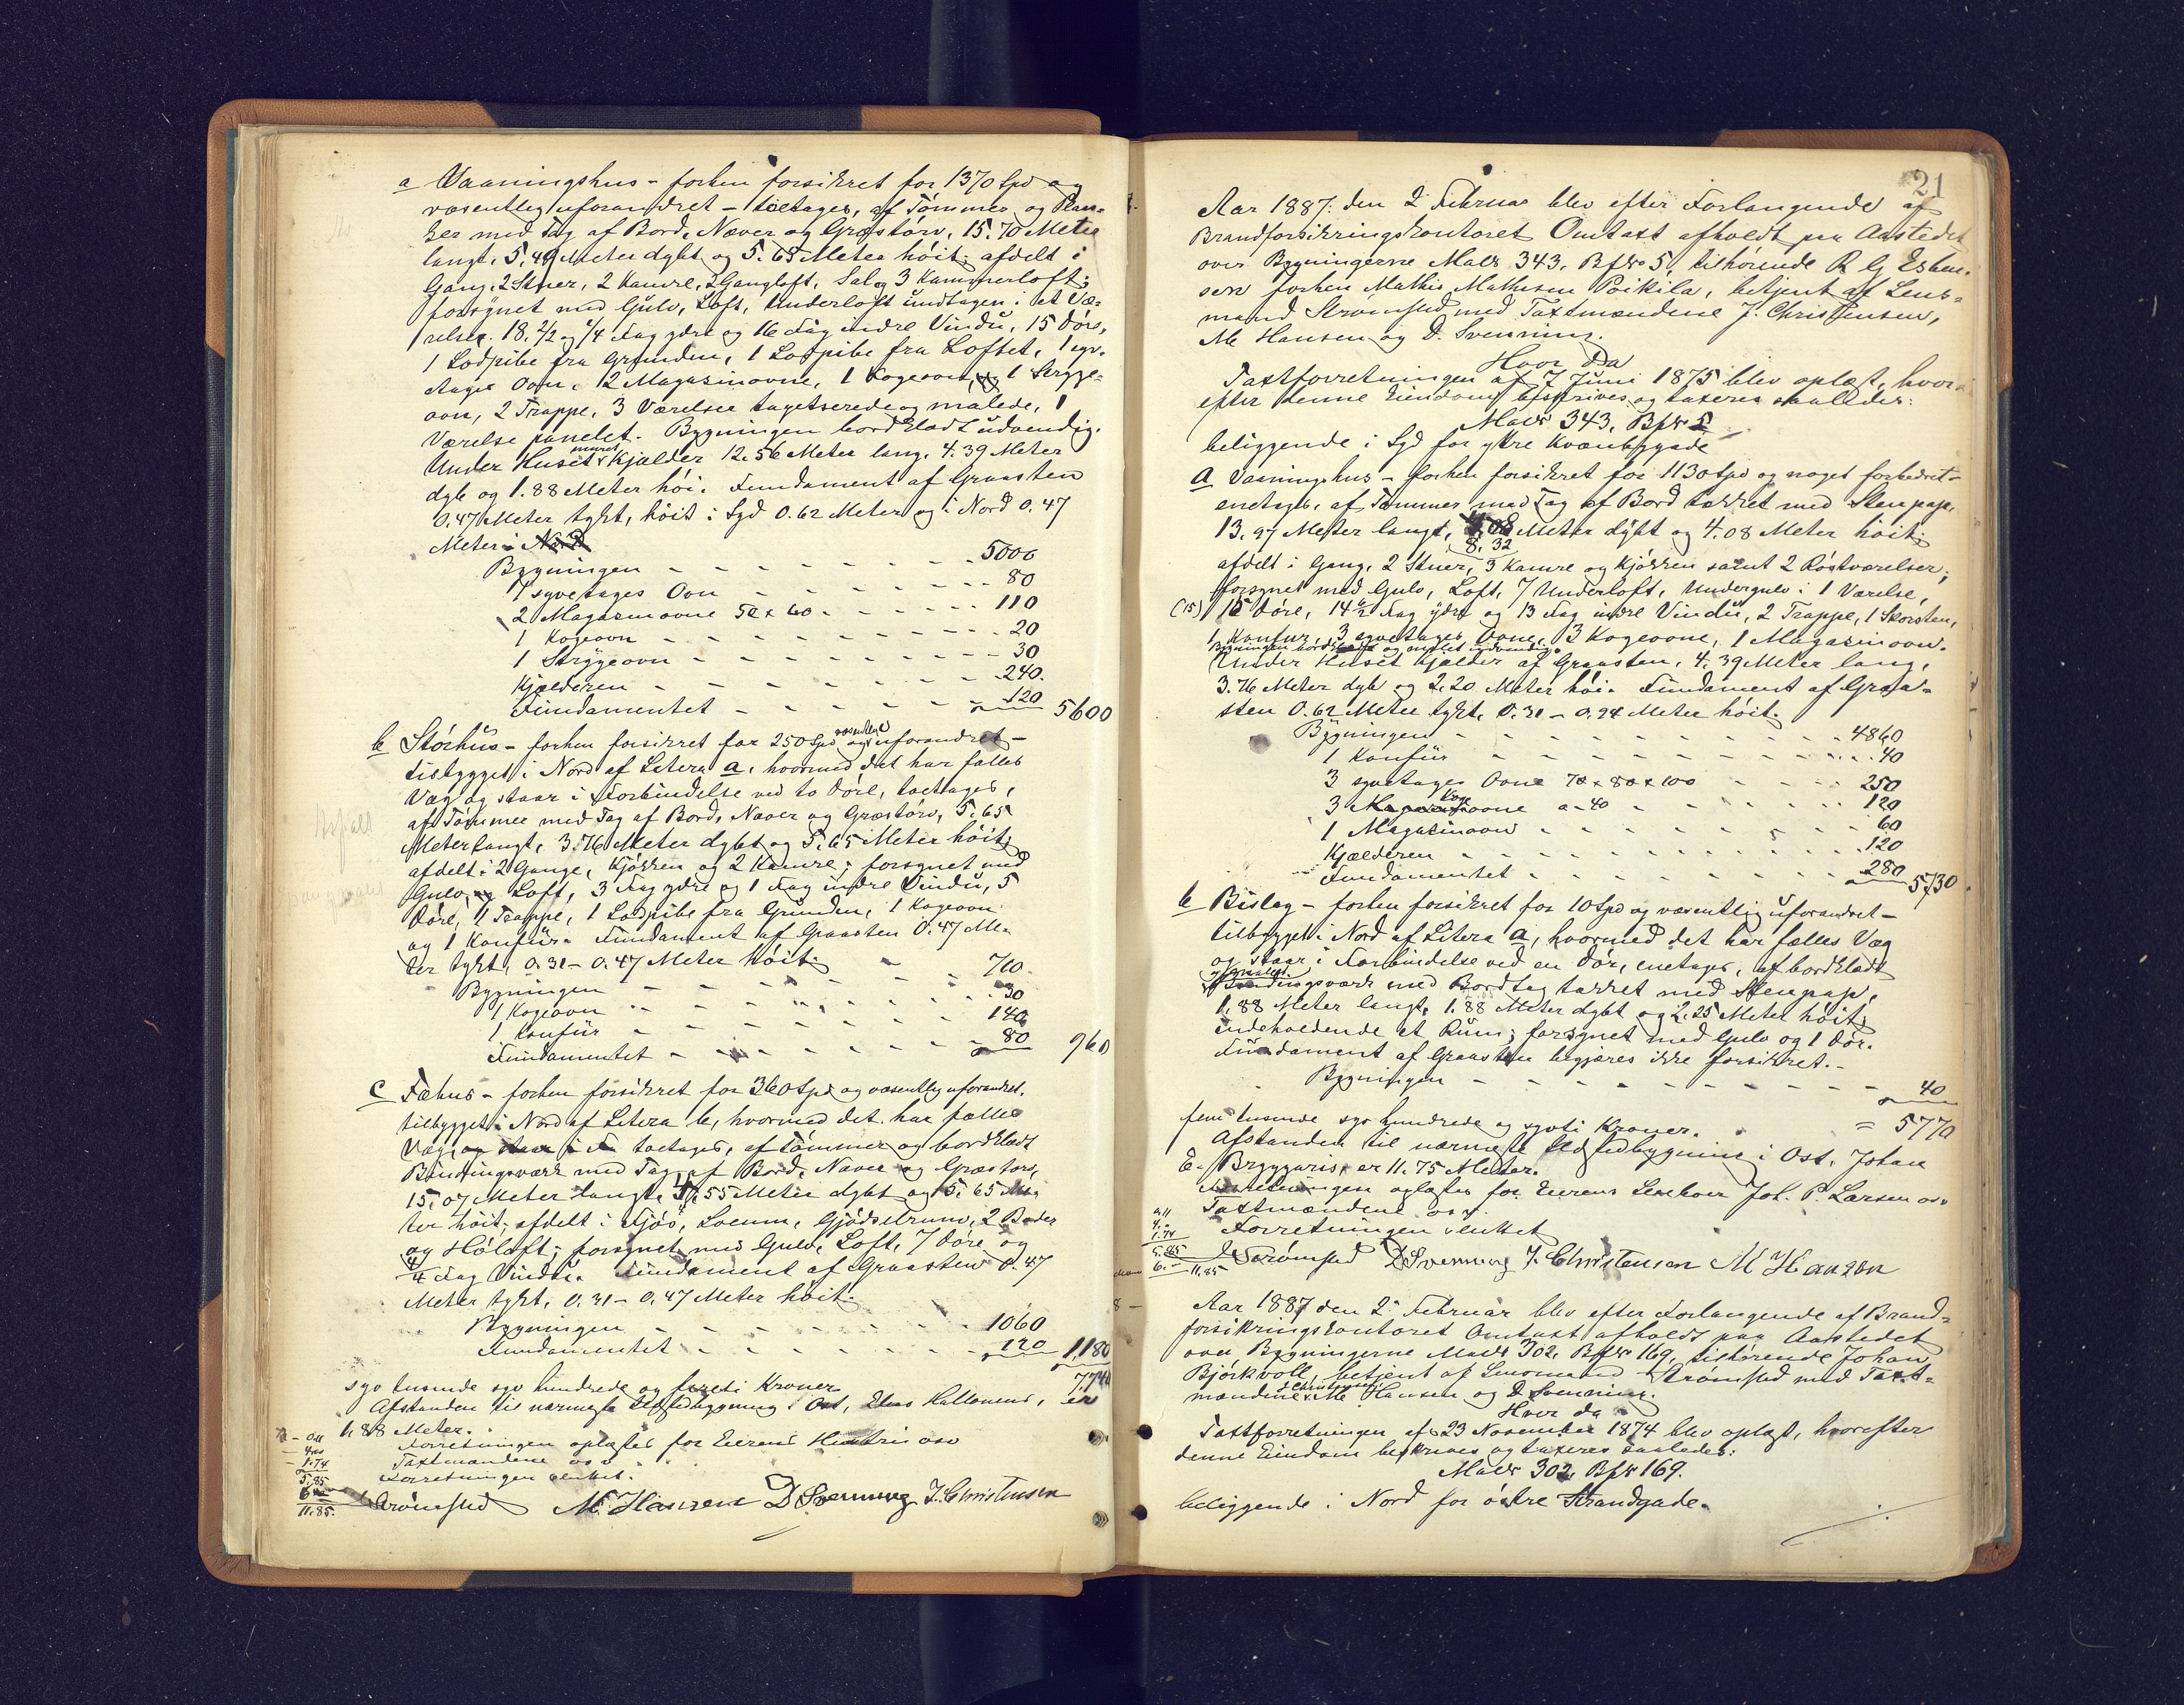 a Vaaningshus - forhen forsikret for 1370 Spd og
væsentlig uforandret - toetages, af Tømmer og Plan-
ker med Tag af Bord, Næver og Græstørv, 15.70 Meter
langt, 5.49 Meter dybt og 5.65 Meter høit; afdelt i
Gang, 2 Stuer, 2 Kamre, 2 Gangloft, Sal og 3 Kammerloft;
forsynet med Gulv, Loft, Underloft undtagen i et Væ-
relse. 18 2/2 og 1/4 Fag ydre og 16 Fag indre Vindu, 15 Døre,
1 Lodpibe fra Grunden, 1 Lodpibe fra Loftet, 1 syv-
etages Ovn, 2 Magasinovne, 1 Kogeovn, og 1 Stryge-
ovn, 2 Trappe, 3 Værelser tapetserede og malede, 1
Værelse panelet. Bygningen bordklædt udvendig.
Under Huset muret Kjælder 12.56 Meter lang, 4.39 Meter
dyb og 1.88 Meter høi. Fundament af Graasten
0.47 Meter tykt, høit i Syd 0.62 Meter og i Nord 0.47
Meter i Nord
Bygningen - - - 5000
1 syvetages Ovn - - - 80
2 Magasinovne 50 x 60 - - - 110
1 Kogeovn - - - 20
1 Strygeovn - - - 30
Kjælderen - - - 240.
Fundamentet - - - 120 5600
b Størhus - forhen forsikret for 250 Spd og væsentligt uforandret -
tilbygget i Nord af Litera a, hvormed det har fælles
Væg og staar i Forbindelse ved to Døre, toetages,
af Tømmer med Tag af Bord, Næver og Græstørv, 5.65
Meter langt, 3.76 Meter dybt og 5.65 Meter høit;
afdelt i 2 Gange, Kjøkken og 2 Kamre; forsynet med
Gulv, og Loft, 3 Fag ydre og 1 Fag indre Vindu, 5
Døre, 1 Trappe, 1 Lodpibe fra Grunden, 1 Kogeovn
og 1 Komfur. Fundament af Graasten 0.47 Me-
ter tykt, 0.31 - 0.47 Meter høit.
Bygningen - - - 710
1 Kogeovn - - - 30
1 Komfür - - - 140
Fundamentet - - - 80 960
c Fæhus - forhen forsikret for 360 Spd og væsentlig uforandret.
tilbygget i Nord af Litera b, hvormed det har fælles
Væg, og staar i F toetages, af Tømmer og bordklædt
Bindingsværk med Tag af Bord, Næver og Græstørv,
15.07 Meter langt, 4.55 Meter dybt og 5.65 Me-
ter høit; afdelt i Fjøs, Loerum, Gjødselrum, 2 Boder
og Høloft; forsynet med Gulv, Loft, 7 Døre og
4/4 Fag Vindu. Fundament af Graasten 0.47
Meter tykt, 0.31 - 0.47 Meter høit.
Bygningen - - - 1060
Fundamentet - - - 120 1,180
syv tusende syv hundrede og fireti Kroner 7740
Afstanden til nærmeste Ildstedbygning i Ost, Elias Kattomens, er
1.88 Meter.
Forretningen oplæstes for Eierens Hustru osv
Taxtmændene osv
Forretningen sluttet.
Strømsted M. Hansen D Svenning J. Christensen
1.74
5.85
6.
11.85.
21
Aar 1887. den 2 Februar blev efter Forlangende af
Brandforsikringskontoret Omtaxt afholdt paa Aastedet
over Bygningerne Matr 343, Bfr 5, tilhørende R G Esben-
sen forhen Mathis Mathisen Poikila, betjent af Lens-
mand Strømsted med Taxtmændene J. Christensen,
M. Hansen og D. Svenning.
Hvor da
Taxtforretningen af 7 Juni 1875 blev oplæst, hvor-
efter denne Eiendom beskrives og taxeres saaledes:
Matr 343, Bfr 5
beliggende i Syd for ytre Kvænbygade
a Vaaningshus - forhen forsikret for 1130 Spd og noget forbedret -
enetages, af Tømmer, med Tag af Bord tækket med Stenpap,
13.97 Meter langt, 4.08 8.32 Meter dybt og 4.08 Meter høit;
afdelt i Gang, 2 Stuer, 3 Kamre og Kjøkken samt 2 Røstværelser;
forsynet med Gulv, Loft, 7 Underloft, Undergulv i 1 Værelse,
(15) 15 Døre, 14 2/2 Fag ydre og 13 Fag indre Vindu, 2 Trappe, 1 Skorsten,
1 Komfur, 3 syvetages Ovne, 3 Kogeovne, 1 Magasinovn.
Bygningen bordklædt og malet udvendig.
Under Huset Kjælder af Graasten, 4.39 Meter lang,
3.76 Meter dyb og 2.20 Meter høi. Fundament af Graa-
sten 0.62 Meter tykt, 0.31 - 0.94 Meter høit.
Bygningen - - - 4860
1 Komfür - - - 40
3 syvetages Ovne 70 x 80 x 100 - - - 250
3 Magasin Koge ovne a - 40 - - - 120
1 Magasinovn - - - 60
Kjælderen - - - 120
Fundamentet - - - 280 5730.
b Bislag - forhen forsikret for 10 Spd og væsentlig uforandret -
tilbygget i Nord af Litera a, hvormed det har fælles Væg
og staar i Forbindelse ved en Dør, enetages, af bordklædt
og panelet Bindingsværk med Bordtag tækket med Stenpap,
1.88 Meter langt, 1.88 Meter dybt og 2.25 Meter høit;
indeholdende et Rum; forsynet med Gulv og 1 Dør.
Fundament af Graasten begjæres ikke forsikret. -
Bygningen - - - 40
fem tusende syv hundrede og sytti Kroner. = 5770
Afstanden til nærmeste Ildstedbygning i Ost, Johan
E. Bryggaris, er 11.75 Meter.
Forretningen oplæstes for Eierens Leieboer Joh. P. Larsen osv
Taxtmændene osv.
Forretningen sluttet
Strømsted D Svenning J. Christensen M Hansen
1.74
5.85
6. -
11.85
Aar 1887 den 2. Februar blev efter Forlangende af Brand-
forsikringskontoret Omtaxt afholdt paa Aastedet
over Bygningerne Matr 302, Bfr 169, tilhørende Johan
Bjørkvoll, betjent af Lensmand Strømsted med Taxt-
mændene J Christensen, M. Hansen og D Svenning.
Hvor da
Taxtforretningen af 23 November 1874 blev oplæst, hvorefter
denne Eiendom beskrives og taxeres saaledes:
Matr 302, Bfr 169.
beliggende i Nord for østre Strandgade.